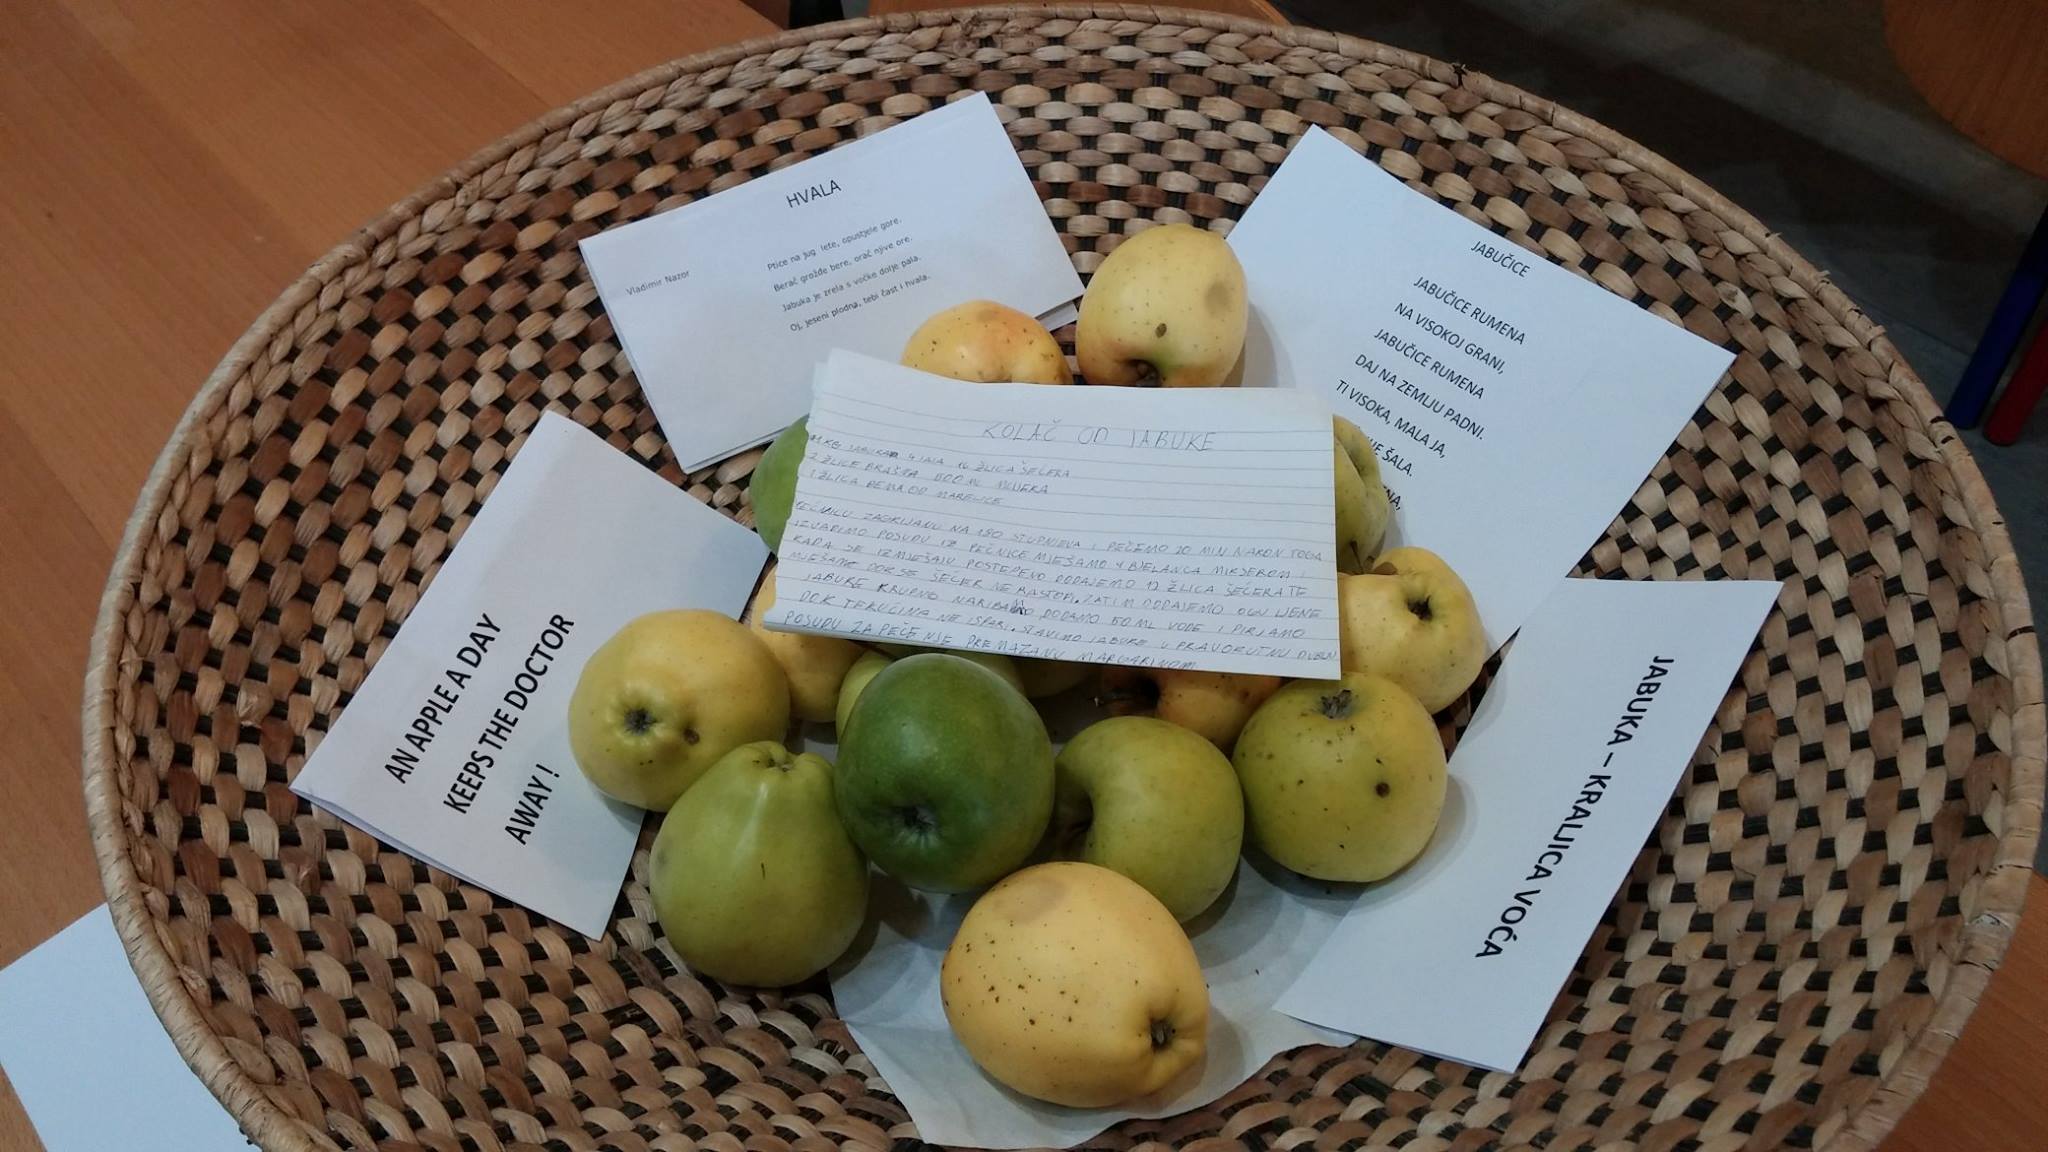 HVALA
Vladimir Nazor
Ptice na jug lete, opustjele gore.
Berač grožđe bere, orač njive ore.
Jabuka je zrela s voćke dolje pala.
Oj, jeseni plodna, tebi čast i hvala.
JABUČICE
JABUČICE RUMENA
NA VISOKOJ GRANI,
JABUČICE RUMENA
DAJ NA ZEMLJU PADNI.
TI VISOKA, MALA JA,
ŠALA.
KOLAČ OD JABUKE
1 KG JABUKA 4 JAJA 16 ŽLICA ŠEĆERA
2 ŽLICE BRAŠNA 500 ML MLIJEKA
1 ŽLICA OD MARELICE
PEĆNICU ZAGRIJANU NA 180 STUPNJEVA I PEČEMO 20 MIN NAKON TOGA
IZVADIMO POSUDU IZ PEČNICE MJEŠAMO 4 BJELANCA MIKSEROM I
KADA SE IZMJEŠAJU POSTEPENO DODAJEMO 12 ŽLICA ŠEĆERA TE
MJEŠAMO DOK SE ŠEĆER NE RASTOPI. ZATIM DODAJEMO OGULJENE
JABUKE KRUPNO NARIBANO DODAMO 50 ML VODE I PIRJAMO
DOK TEKUČINA NE ISPARI. STAVIMO JABUKE U PRAVOKUTNU DUBLJU
POSUDU ZA PEČENJE PREMAZANU MARGARINOM
AN APPLE A DAY
KEEPS THE DOCTOR
AWAY !
JABUKA – KRALJICA VOĆA